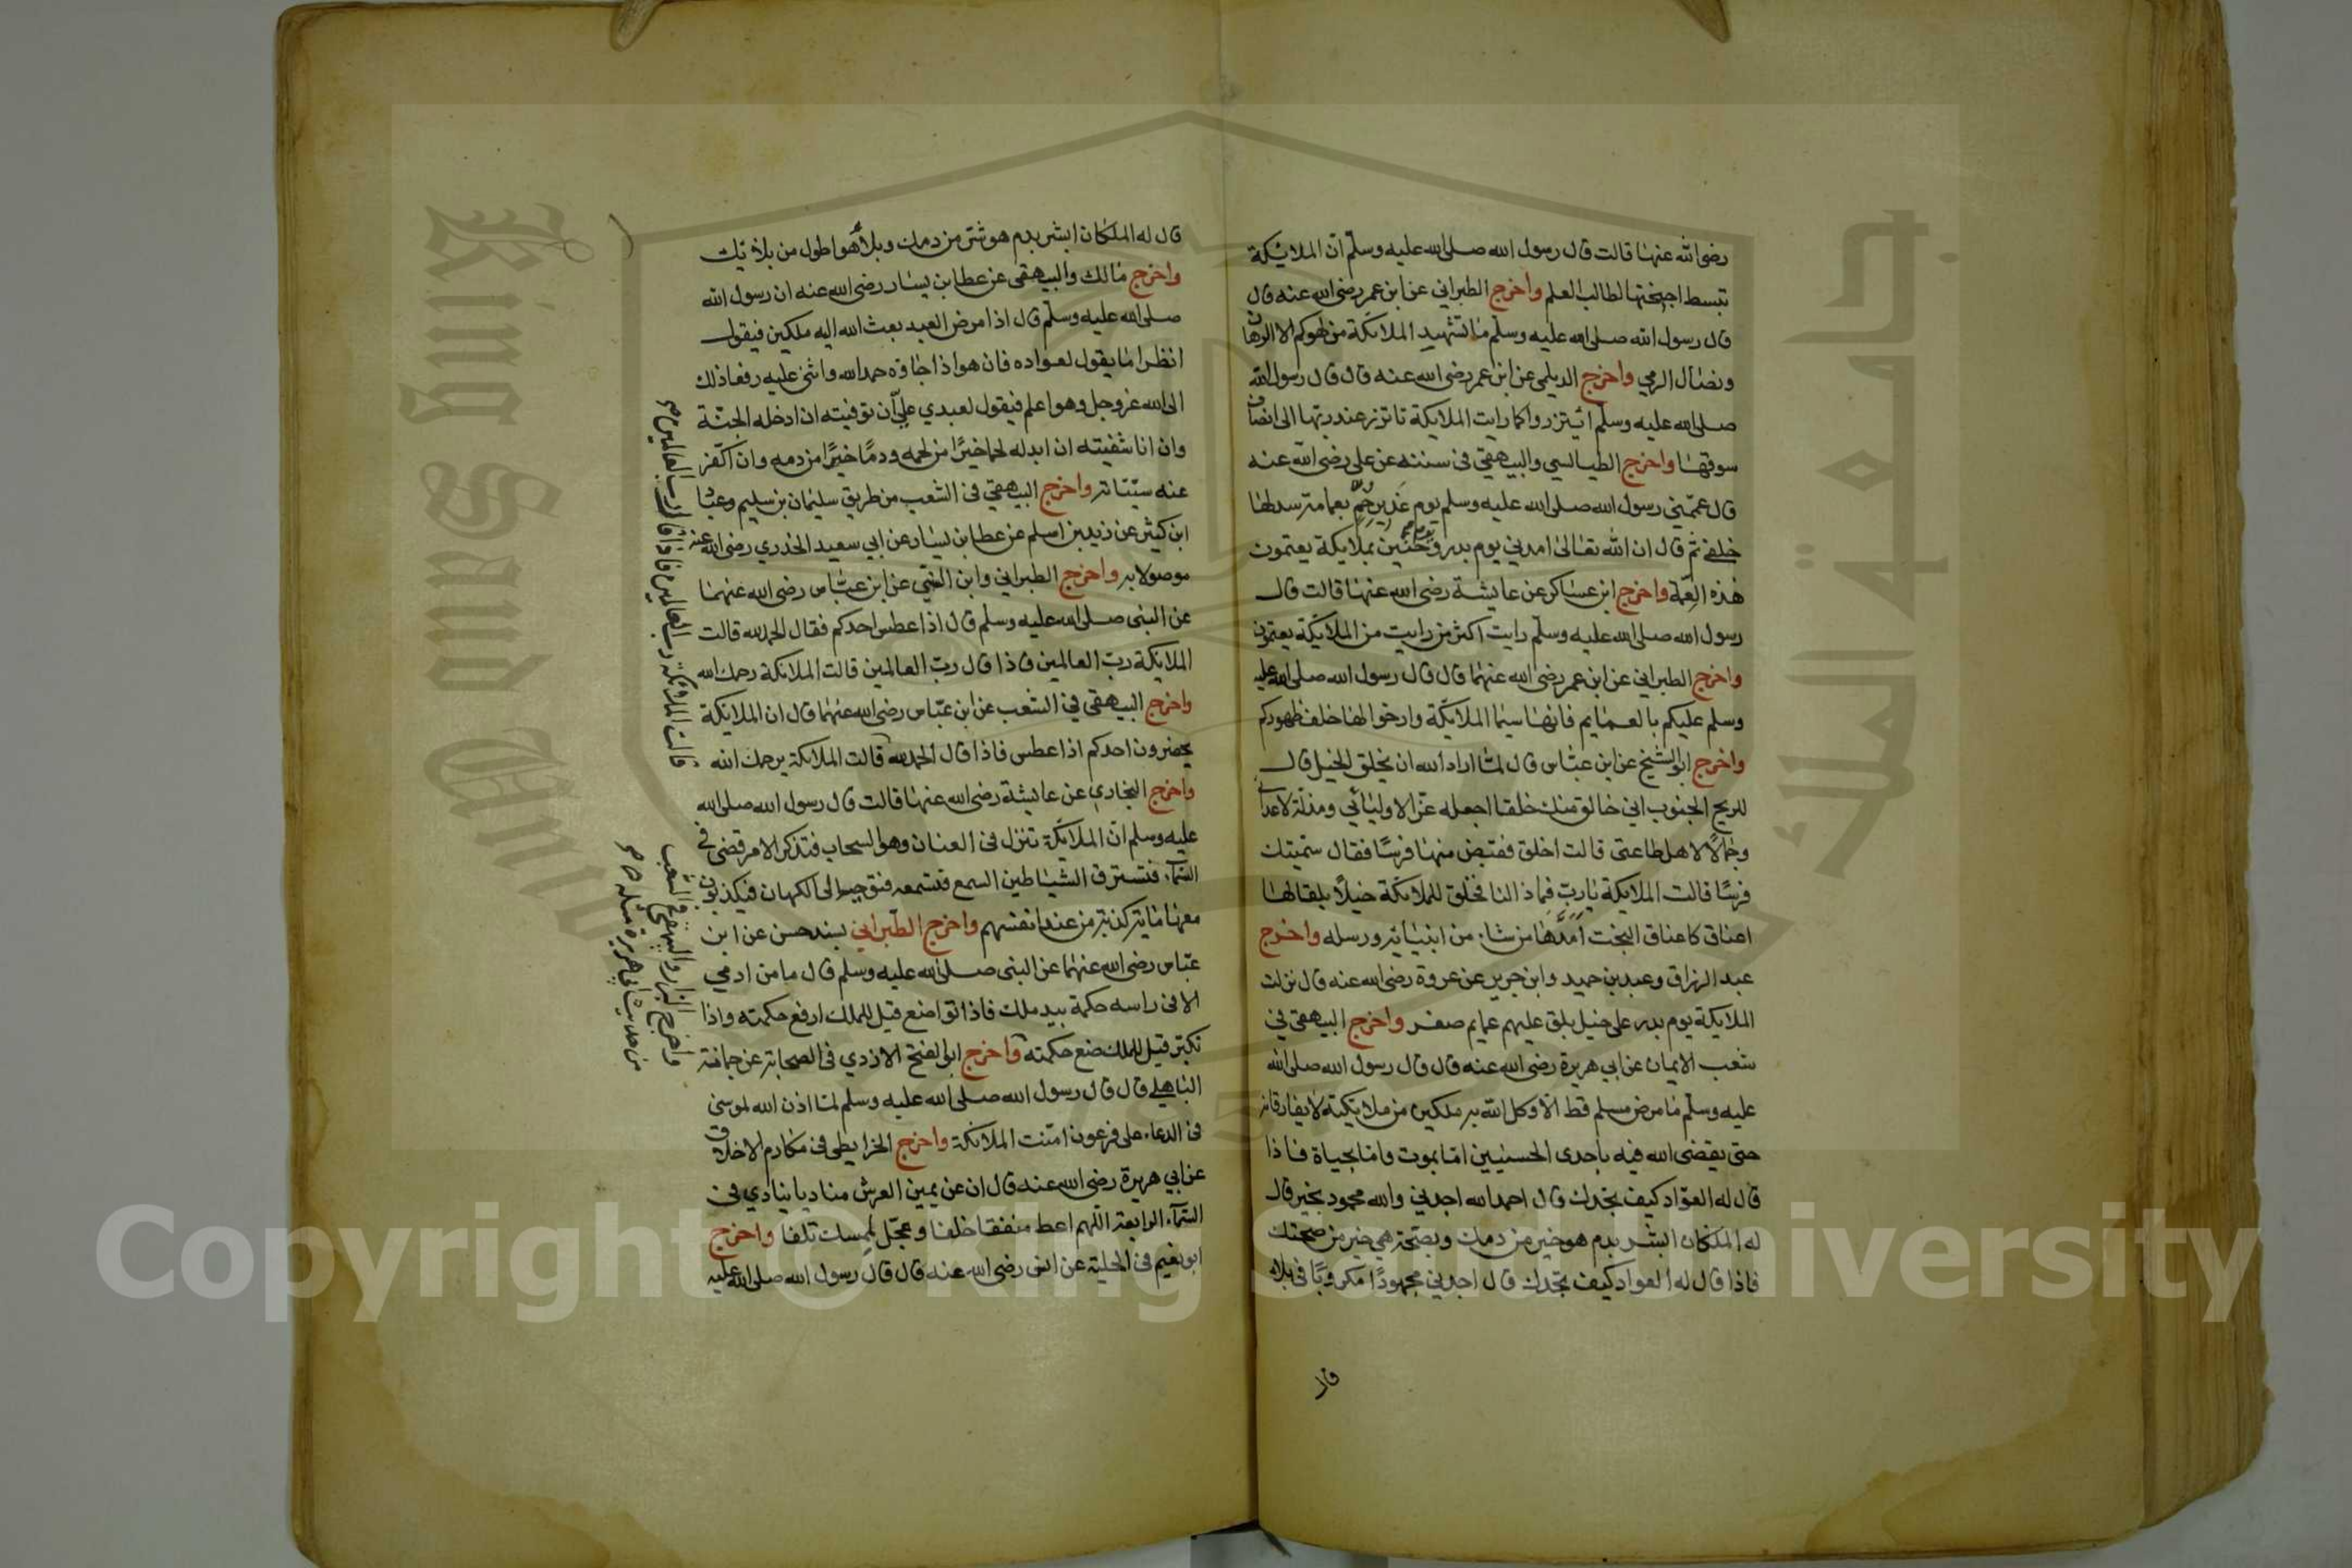 رضي الله عنها قالت قال رسول الله صلى الله عليه وسلم ان الملائكة
تبسط اجنحتها لطالب العلم واخرج الطبراني عن ابن عمر رضي الله عنه قال
قال رسول الله صلى الله عليه وسلم ما تشهد الملائكة من لهوكم الا الرهان
ونضال الرمي واخرج الديلمي عن ابن عمر رضي الله عنه قال قال رسول الله
صلى الله عليه وسلم ائتزروا كما رايت الملائكة تاتزر عند ربها الى انصاف
سوقها واخرج الطيالسي والبيهقي في سننه عن علي رضي الله عنه
قال عممني رسول الله صلى الله عليه وسلم يوم غدير خم بعمامة سدلها
خلفي ثم قال ان الله تعالى امدني يوم بدر ويوم حنين بملايكة يعتمون
هذه العمة واخرج ابن عساكر عن عايشة رضي الله عنها قالت قال
رسول الله صلى الله عليه وسلم رايت اكثر من رايت من الملائكة يعتمون
واخرج الطبراني عن ابن عمر رضي الله عنهما قال قال رسول الله صلى الله عليه
وسلم عليكم بالعمايم فانها سيما الملائكة وارخوا لها خلف ظهوركم
واخرج ابو الشيخ عن ابن عباس قال لما اراد الله ان يخلق الخيل قال
للريح الجنوب اني خالق منك خلقا اجعله عزا لاوليائي ومذلة لاعدائي
وجمالا لاهل طاعتي قالت اخلق فقبض منها فرسا فقال سميتك
فرسا قالت الملايكة يارب فماذا لنا فخلق للملائكة خيلا بلقا لها
اعناق كاعناق البخت امد بها من شاء من انبيائه ورسله واخرج
عبد الرزاق وعبد بن حميد وابن جرير عن عروة رضي الله عنه قال نزلت
الملايكة يوم بدر على خيل بلق عليهم عمايم صفر واخرج البيهقي في
شعب الايمان عن ابي هريرة رضي الله عنه قال قال رسول الله صلى الله
عليه وسلم ما مرض مسلم قط الا وكل الله به ملكين من ملائكته لا يفارقانه
حتى يقضي الله فيه باحدى الحسنيين اما بموت واما بحياة فاذا
قال له العواد كيف تجدك قال احمد الله اجدني والله محمود بخير قال
له الملكان ابشر بدم هو خير من دمك وبصحة هي خير من صحتك
فاذا قال له العواد كيف تجدك قال اجدني مجهودا مكروبا في بلاء
قال
قال له الملكان ابشر بدم هو شر من دمك وبلاء هو اطول من بلائك
واخرج مالك والبيهقي عن عطا بن يسار رضي الله عنه ان رسول الله
صلى الله عليه وسلم قال اذا مرض العبد بعث الله اليه ملكين فيقول
انظرا ما يقول لعواده فان هو اذا جاؤه حمد الله واثنى عليه رفعا ذلك
الى الله عز وجل وهو اعلم فيقول لعبدي علي ان توفيته ان ادخله الجنة
وان انا شفيته ان ابدله لحما خيرا من لحمه ودما خيرا من دمه وان اكفر
عنه سيئاته واخرج البيهقي في الشعب من طريق سليمان بن سليم وعباد
ابن كثير عن زيد بن اسلم عن عطا بن يسار عن ابي سعيد الخدري رضي الله عنه
موصولا به واخرج الطبراني وابن السني عن ابن عباس رضي الله عنهما
عن النبي صلى الله عليه وسلم قال اذا عطس احدكم فقال الحمد لله قالت
الملايكة رب العالمين فاذا قال رب العالمين قالت الملائكة رحمك الله
واخرج البيهقي في الشعب عن ابن عباس رضي الله عنهما قال ان الملائكة
يحضرون احدكم اذا عطس فاذا قال الحمد لله قالت الملائكة يرحمك الله
واخرج البخاري عن عايشة رضي الله عنها قالت قال رسول الله صلى الله
عليه وسلم ان الملائكة تنزل في العنان وهو السحاب فتذكر الامر قضي في
السماء فتسترق الشياطين السمع فتسمعه فتوحيه الى الكهان فيكذبون
معها ماية كذبة من عند انفسهم واخرج الطبراني بسند حسن عن ابن
عباس رضي الله عنهما عن النبي صلى الله عليه وسلم قال ما من ادمي
الا في راسه حكمة بيد ملك فاذا تواضع قيل للملك ارفع حكمته واذا
تكبر قيل للملك ضع حكمته واخرج ابو الفتح الازدي في الصحابة عن جمانة
الباهلي قال قال رسول الله صلى الله عليه وسلم لما اذن الله لموسى
في الدعاء على فرعون امنت الملائكة واخرج الخرايطي في مكارم الاخلاق
عن ابي هريرة رضي الله عنه قال ان عن يمين العرش مناديا ينادي في
السماء الرابعة اللهم اعط منفقا خلفا وعجل لممسك تلفا واخرج
ابو نعيم في الحلية عن انس رضي الله عنه قال قال رسول الله صلى الله عليه
قالت الملائكة رب العالمين فاذا قال رب العالمين صح
واخرج البزار والبيهقي في الشعب
من حديث ابي هريرة مثله صح
جامعة الملك
King Saud Univ
Copyright © King Saud University